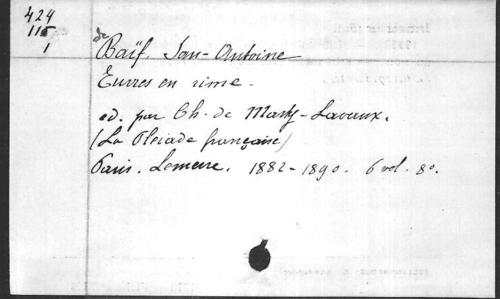 424
115
1
de
Baïf. Jan-Antoine
Euvres en rime.
ed. par Ch. de Marty-Laveaux.
(La Pleiade française)
Paris. Lemerre. 1882-1890. 6 vol. 8o.